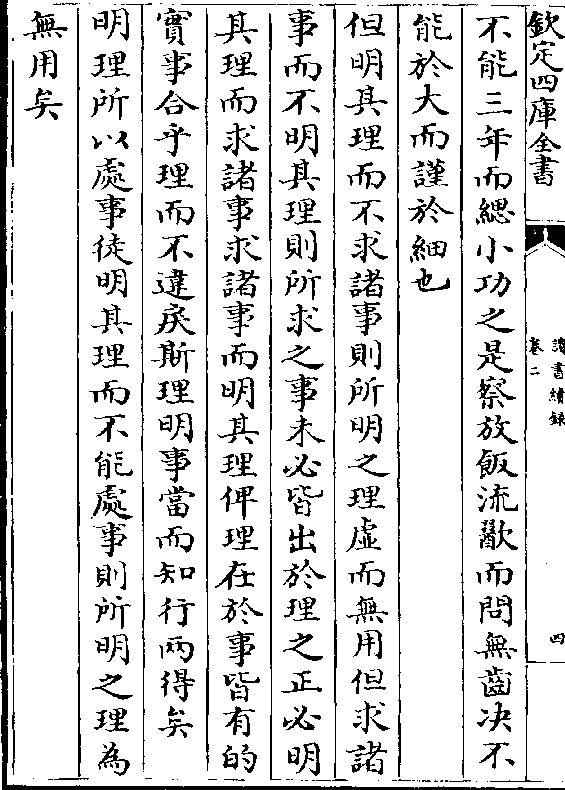 欽定四庫全書
讀書續録
卷二
四
不能三年而緦小功之是察放飯流歠而問無齒决不
能於大而謹於細也
但明其理而不求諸事則所明之理虛而無用但求諸
事而不明其理則所求之事未必皆出於理之正必明
其理而求諸事求諸事而明其理俾理在於事皆有的
實事合乎理而不違戾斯理明事當而知行兩得矣
明理所以處事徒明其理而不能處事則所明之理為
無用矣